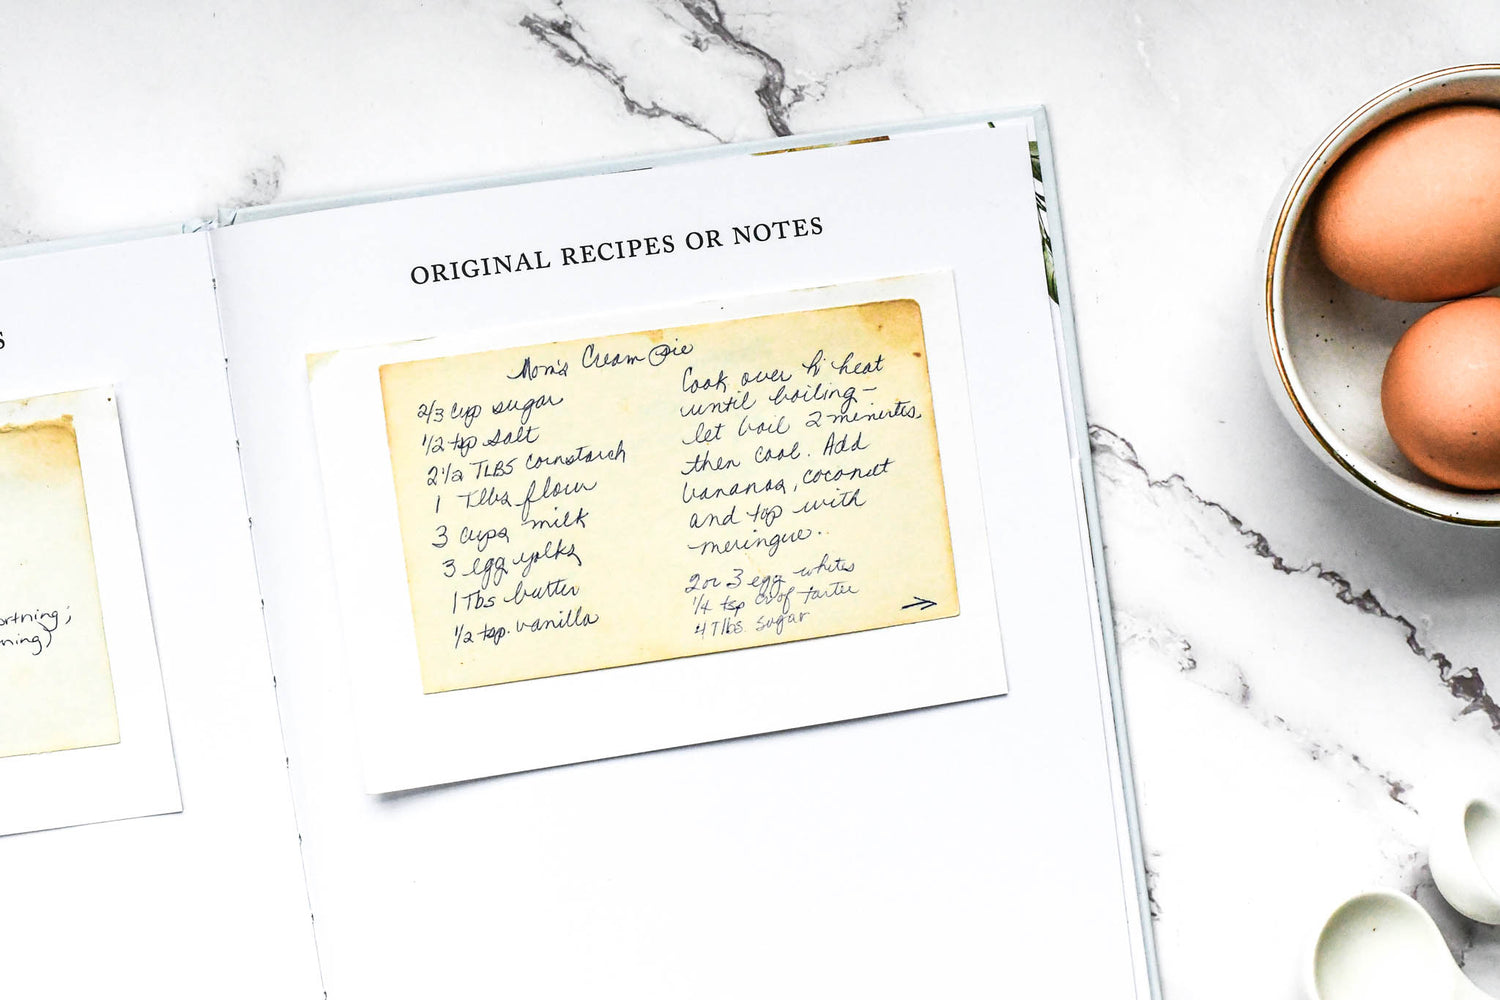 s
ortning;
ning)
ORIGINAL RECIPES OR NOTES
Mom's Cream Pie
2/3 cup sugar
1/2 tsp salt
2 1/2 TLBS cornstarch
1 Tlbs flour
3 cups milk
3 egg yolks
1 Tbs butter
1/2 tsp. vanilla
Cook over hi heat
until boiling—
let boil 2 minutes,
then cool. Add
bananas, coconut
and top with
meringue..
2 or 3 egg whites
1/4 tsp cr of tarter
4 Tlbs. sugar
→